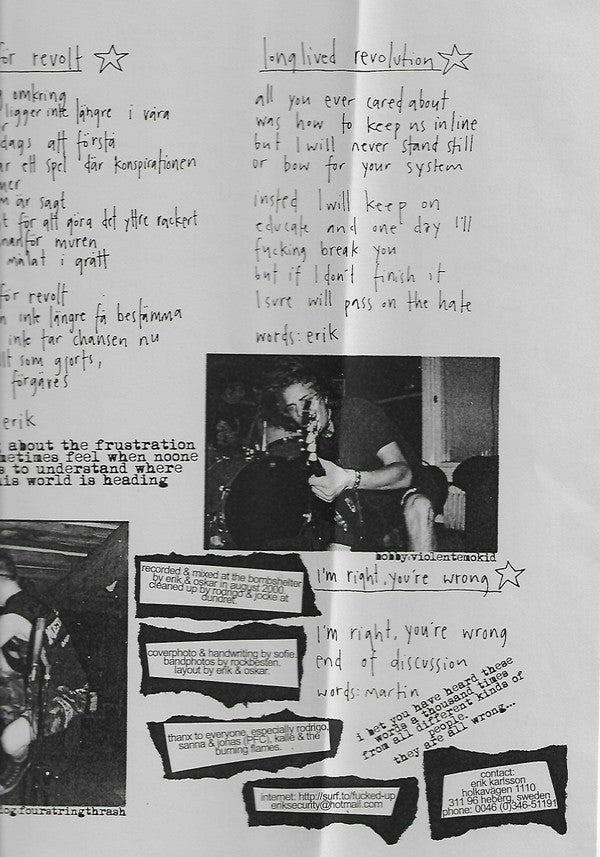 ör revolt
omkring
ligger inte längre i våra
dags att förstå
ar ett spel där konspirationen
ner
m är sagt
t för att göra det yttre vackert
nanför muren
målat i grått
för revolt
n inte längre få bestämma
inte tar chansen nu
llt som gjorts,
förgäves
erik
about the frustration
metimes feel when noone
s to understand where
is world is heading
ogfourstringthrash
longlived revolution
all you ever cared about
was how to keep us in line
but I will never stand still
or bow for your system
insted I will keep on
educate and one day I'll
fucking break you
but if I don't finish it
I sure will pass on the hate
words: erik
bobby.violentemokid
recorded & mixed at the bombshelter
by erik & oskar in august 2000.
cleaned up by rodrigo & jocke at
dundret.
coverphoto & handwriting by sofie
bandphotos by rockbesten.
layout by erik & oskar.
thanx to everyone, especially rodrigo,
sanna & jonas (PFC), kalle & the
burning flames.
internet: http://surf.to/fucked-up
eriksecurity@hotmail.com
I'm right, you're wrong
I'm right, you're wrong
end of discussion
words: martin
i bet you have heard these
words a thousand times
from all different kinds of
people.
they are all wrong...
contact:
erik karlsson
holkavägen 1110
311 96 heberg, sweden
phone: 0046 (0)346-51191